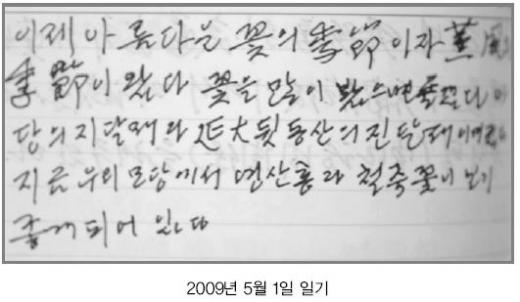 이제 아름다운 꽃의 季節이자
季節이 왔다 꽃을 많이 봤으면
당의 지달래와 延大 뒷동산의 진달래
지금 우리 모당에서 연산홍과 철죽꽃이 보기
좋게 되어 있다
2009년 5월 1일 일기